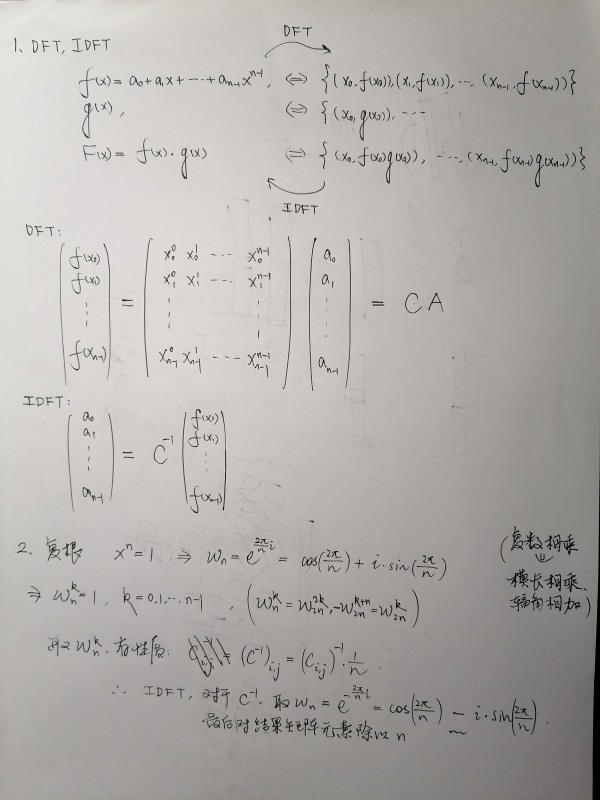 1、DFT, IDFT
DFT
f(x) = a₀+a₁x+⋯+aₙ₋₁xⁿ⁻¹, ⇔ {(x₀, f(x₀)),(x₁,f(x₁)), ⋯, (xₙ₋₁, f(xₙ₋₁))}
g(x), ⇔ {(x₀, g(x₀)), ⋯
F(x) = f(x)·g(x) ⇔ {(x₀, f(x₀)g(x₀)), ⋯, (xₙ₋₁, f(xₙ₋₁)g(xₙ₋₁))}
IDFT
DFT:
(f(x₀) f(x₁) ⋮ f(xₙ₋₁)) = (x₀⁰ x₀¹ ⋯ x₀ⁿ⁻¹
x₁⁰ x₁¹ ⋯ x₁ⁿ⁻¹
⋮ ⋮
xₙ₋₁⁰ xₙ₋₁¹ ⋯ xₙ₋₁ⁿ⁻¹) (a₀ a₁ ⋮ aₙ₋₁) = CA
IDFT:
(a₀ a₁ ⋮ aₙ₋₁) = C⁻¹ (f(x₀) f(x₁) ⋮ f(xₙ₋₁))
2、复根 xⁿ=1 ⇒ wₙ = e^(2π/n i) = cos(2π/n) + i·sin(2π/n)
(复数相乘
⇓
模长相乘、
辐角相加)
⇒ wₙᵏ=1, k=0,1,⋯,n-1 , (wₙᵏ = w₂ₙ²ᵏ, -w₂ₙᵏ⁺ⁿ = w₂ₙᵏ)
取wₙᵏ, 有性质: (C⁻¹)ᵢ,ⱼ = (Cᵢ,ⱼ)⁻¹·1/n
∴ IDFT, 对于C⁻¹, 取wₙ = e^(-2π/n i) = cos(2π/n) - i·sin(2π/n)
最后对结果矩阵元素除以n